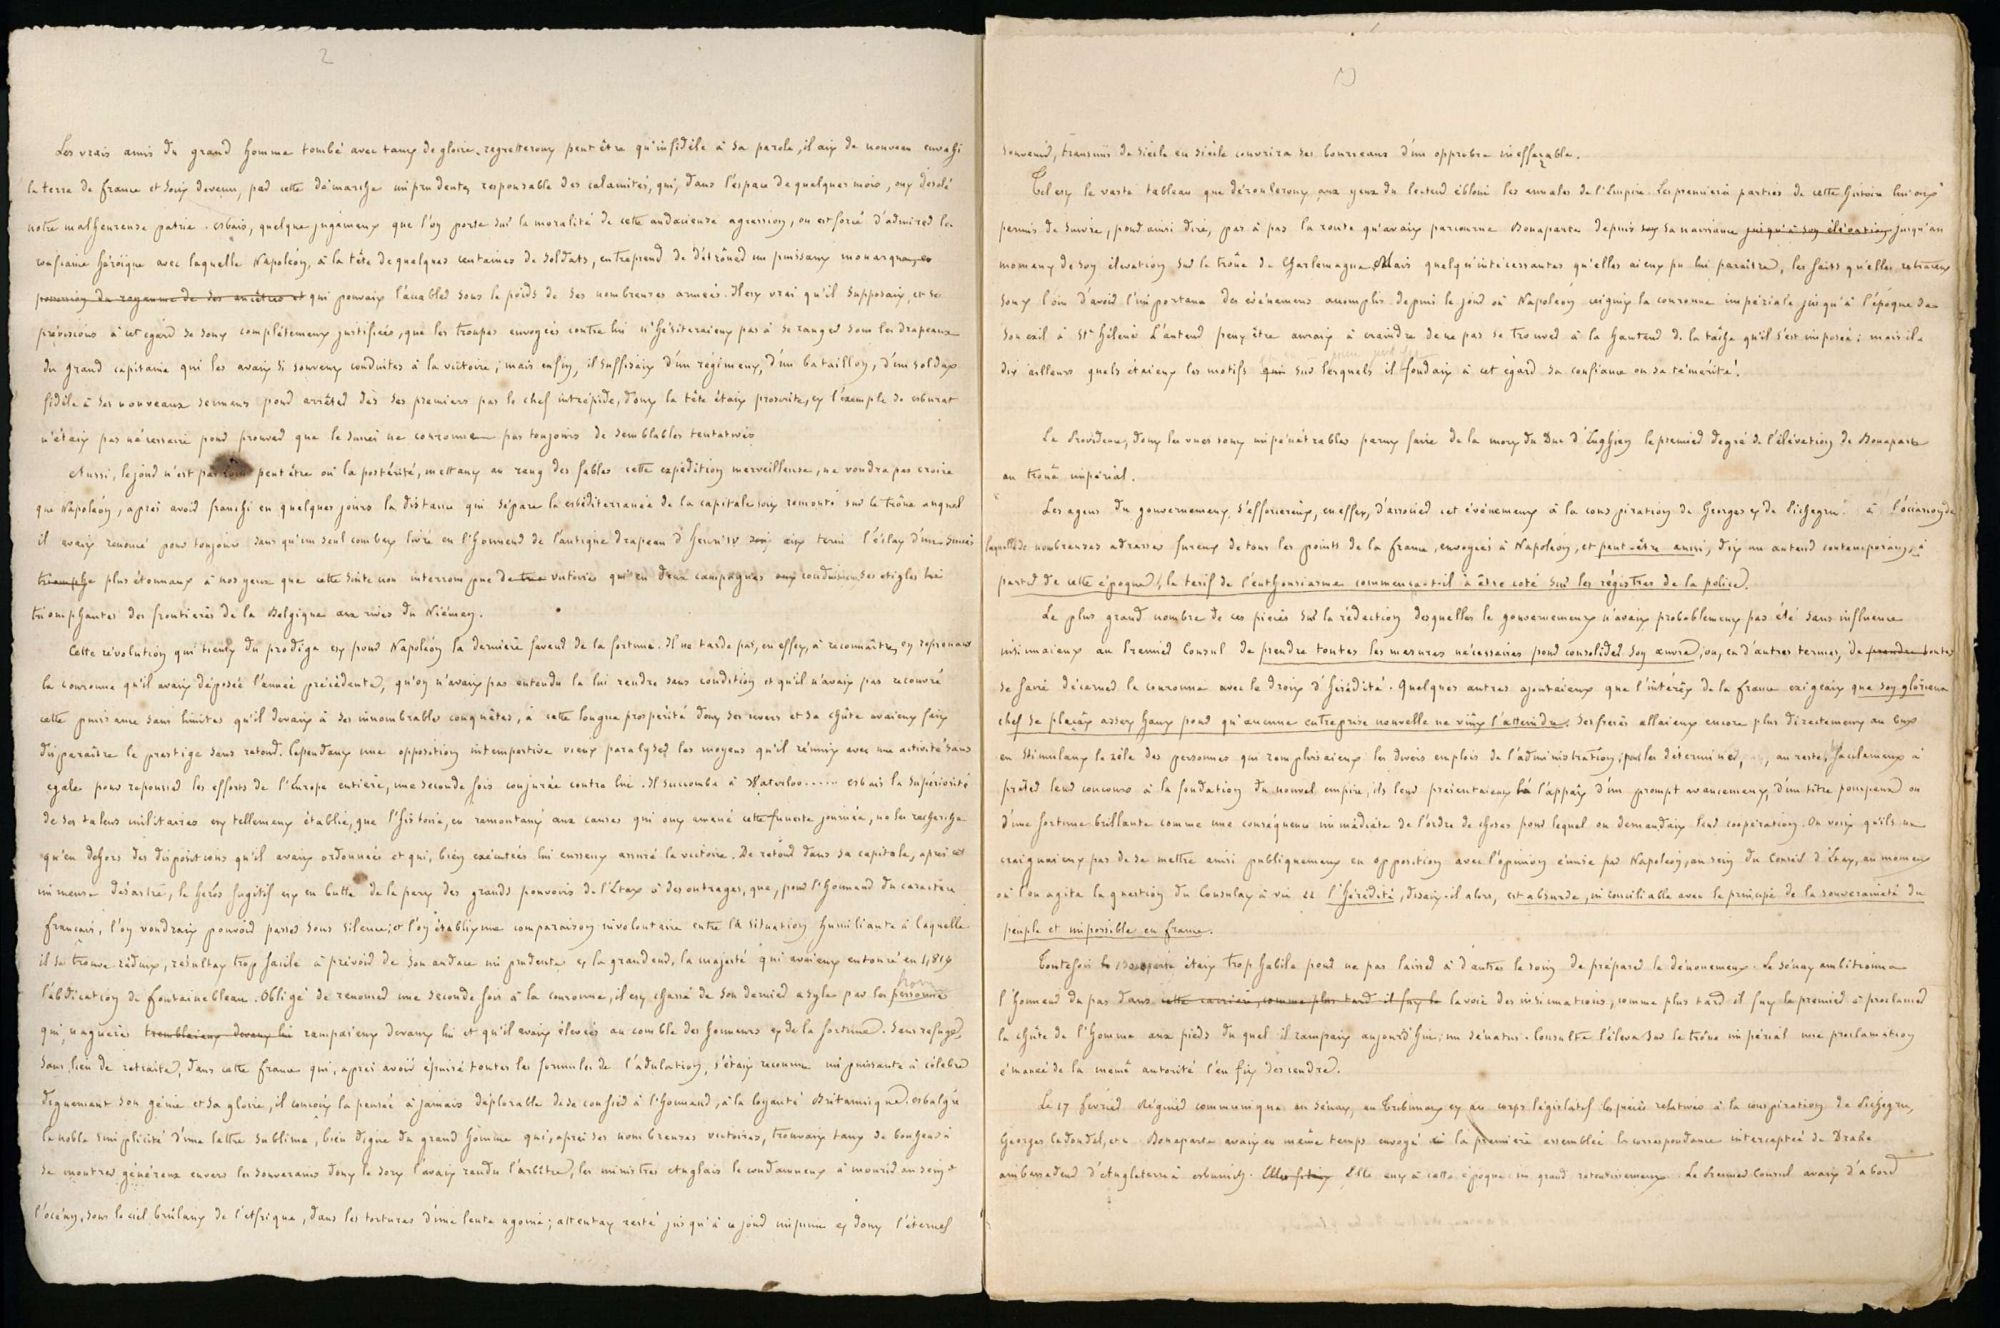 2
Les vrais amis du grand homme tombé avec tant de gloire, regretteront peut être qu'infidèle à sa parole, il ait de nouveau envahi
la terre de france et soit devenu, par cette démarche imprudente, responsable des calamités, qui, dans l'espace de quelques mois, ont désolé
notre malheureuse patrie. Mais, quelque jugement que l'on porte sur la moralité de cette audacieuse agression, on est forcé d'admirer la
confiance héroïque avec laquelle Napoléon, à la tête de quelques centaines de soldats, entreprend de détrôner un puissant monarque, en
possession du royaume de ses ancêtres et qui pouvait l'accabler sous le poids de ses nombreuses armées. Il est vrai qu'il supposait, et ses
prévisions à cet égard se sont complètement justifiées, que les troupes envoyées contre lui n'hésiteraient pas à se ranger sous les drapeaux
du grand capitaine qui les avait si souvent conduites à la victoire; mais enfin, il suffisait d'un régiment, d'un bataillon, d'un soldat
fidèle à ses nouveaux sermens pour arrêter dès ses premiers pas le chef intrépide, dont la tête était proscrite, et l'exemple de Murat
n'était pas nécessaire pour prouver que le succès ne couronne pas toujours de semblables tentatives
Aussi, le jour n'est pas loin peut être où la postérité, mettant au rang des fables cette expédition merveilleuse, ne voudra pas croire
que Napoléon, après avoir franchi en quelques jours la distance qui sépare la Méditerranée de la capitale soit remonté sur le trône auquel
il avait renoncé pour toujours sans qu'un seul combat livré en l'honneur de l'antique drapeau d'Henri IV ait terni l'éclat d'un succès
triomphe plus étonnant à nos yeux que cette suite non interrompue de victoires qui en deux campagnes ont conduit ses aigles
triomphantes des frontières de la Belgique aux rives du Niémen.
Cette révolution qui tient du prodige est pour Napoléon la dernière faveur de la fortune. Il ne tarde pas, en effet, à reconnaître, en reprenant
la couronne qu'il avait déposée l'année précédente, qu'on n'avait pas entendu la lui rendre sans condition et qu'il n'avait pas recouvré
cette puissance sans limites qu'il devait à ses innombrables conquêtes, à cette longue prospérité dont ses revers et sa chûte avaient fait
disparaître le prestige sans retour. Cependant une opposition intempestive vient paralyser les moyens qu'il réunit avec une activité sans
égale pour repousser les efforts de l'Europe entière, une seconde fois conjurée contre lui. Il succomba à Waterloo..... Mais la supériorité
de ses talens militaires est tellement établie, que l'histoire, en remontant aux causes qui ont amené cette funeste journée, ne les recherche
qu'en dehors des dispositions qu'il avait ordonnées et qui, bien exécutées lui eussent assuré la victoire. De retour dans sa capitale, après cet
immense désastre, le héros fugitif est en butte de la part des grands pouvoirs de l'Etat à des outrages, que, pour l'honneur du caractère
français, l'on voudrait pouvoir passer sous silence; et l'on établit une comparaison involontaire entre la situation humiliante à laquelle
il se trouve réduit, résultat trop facile à prévoir de son audace imprudente et la grandeur, la majesté qui avaient entouré en 1814
l'abdication de fontainebleau. Obligé de renoncer une seconde fois à la couronne, il est chassé de son dernier asyle par les personnes
qui, naguères tremblaient devant lui rampaient devant lui et qu'il avait élevés au comble des honneurs et de la fortune. Sans refuge,
sans lieu de retraite, dans cette france qui, après avoir épuisé toutes les formules de l'adulation, s'était reconnue impuissante à célébrer
dignement son génie et sa gloire, il conçoit la pensée à jamais déplorable de se confier à l'honneur, à la loyauté Britannique. Malgré
la noble simplicité d'une lettre sublime, bien digne du grand homme qui, après ses nombreuses victoires, trouvait tant de bonheur à
se montrer généreux envers les souverains dont le sort l'avait rendu l'arbitre, les ministres Anglais le condamnent à mourir au sein de
l'océan, sous le ciel brûlant de l'Afrique, dans les tortures d'une lente agonie; attentat resté jusqu'à ce jour impuni et dont l'éternel
3
souvenir, transmis de siècle en siècle couvrira ses bourreaux d'un opprobre ineffaçable.
Tel est le vaste tableau que dérouleront aux yeux du lecteur ébloui les annales de l'Empire. Les premières parties de cette histoire lui ont
permis de suivre, pour ainsi dire, pas à pas la route qu'avait parcourue Bonaparte depuis sa naissance jusqu'à son élévation jusqu'au
moment de son élévation sur le trône de Charlemagne. Mais quelqu'intéressantes qu'elles aient pu lui paraître, les faits qu'elles retracent
sont loin d'avoir l'importance des événemens accomplis depuis le jour où Napoléon ceignit la couronne impériale jusqu'à l'époque de
son exil à Ste Hélène. L'auteur peut être aurait à craindre de ne pas se trouver à la hauteur de la tâche qu'il s'est imposée: mais il a
dit ailleurs quels étaient les motifs qui sur lesquels il fondait à cet égard sa confiance ou sa témérité.
La Providence, dont les vues sont impénétrables permit faire de la mort du Duc d'Enghien le premier degré de l'élévation de Bonaparte
au trône impérial.
Les agens du gouvernement s'efforcèrent, en effet, d'associer cet événement à la conspiration de Georges et de Pichegru à l'occasion de
laquelle de nombreuses adresses furent de tous les points de la france, envoyées à Napoléon, et peut-être aussi, dit un auteur contemporain, à
partir de cette époque, le tarif de l'enthousiasme commença-t-il à être coté sur les régistres de la police.
Le plus grand nombre de ces pièces sur la rédaction desquelles le gouvernement n'avait probablement pas été sans influence
insinuaient au Premier Consul de prendre toutes les mesures nécessaires pour consolider son œuvre, ou, en d'autres termes, de
se faire décerner la couronne avec le droit d'hérédité. Quelques autres ajoutaient que l'intérêt de la france exigeait que son glorieux
chef se plaçât assez haut pour qu'aucune entreprise nouvelle ne vînt l'atteindre. Ses frères allaient encore plus directement au but
en stimulant le zèle des personnes qui remplissaient les divers emplois de l'administration; pour les déterminer, au reste, facilement à
prêter leur concours à la fondation du nouvel empire, ils leur présentaient l'appât d'un prompt avancement, d'un titre pompeux ou
d'une fortune brillante comme une conséquence immédiate de l'ordre de choses pour lequel on demandait leur coopération. On voit qu'ils ne
craignaient pas de se mettre ainsi publiquement en opposition avec l'opinion émise par Napoléon, au sein du Conseil d'Etat, au moment
où l'on agita la question du Consulat à vie « l'hérédité, disait-il alors, est absurde, inconciliable avec le principe de la souveraineté du
peuple et impossible en france.
Toutefois Bonaparte était trop habile pour ne pas laisser à d'autres le soin de préparer le dénouement. Le sénat ambitionna
l'honneur du pas dans cette carrière, comme plus tard il fut le la voie des insinuations, comme plus tard il fut le premier à proclamer
la chûte de l'homme aux pieds du quel il rampait aujourd'hui; un sénatus-Consulte l'éleva sur le trône impérial une proclamation
émanée de la même autorité l'en fit descendre.
Le 17 février Régnier communiqua au sénat, au Tribunat et au corps législatif les pièces relatives à la conspiration de Pichegru,
Georges Cadoudal, etc. Bonaparte avait en même temps envoyé à la première assemblée la correspondance interceptée de Drake
ambassadeur d'Angleterre à Munich. Elle eut à cette époque un grand retentissement. Le Premier Consul avait d'abord